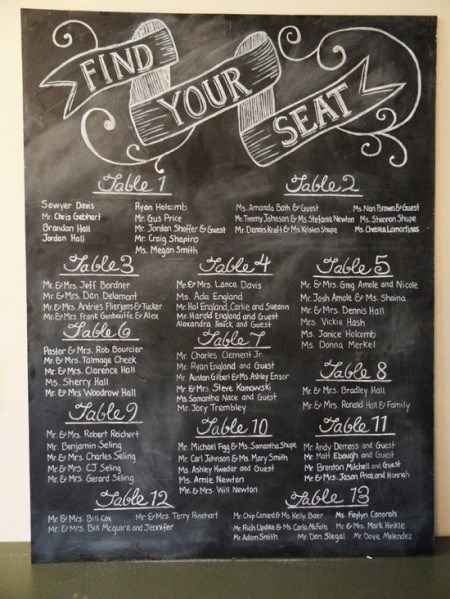 FIND
YOUR
SEAT
Table 1
Sawyer Denis
Mr. Chris Gebhart
Brandan Hall
Jordan Hall
Ryan Holcomb
Mr. Gus Price
Mr. Jordan Shaffer & Guest
Mr. Craig Shapiro
Ms. Megan Smith
Table 2
Ms. Amanda Bath & Guest
Mr. Timmy Johnson & Ms. Stefanie Newton
Mr. Dennis Kraft & Ms. Kristen Shupe
Ms. Nan Brown & Guest
Ms. Sharon Shupe
Ms. Chelsea Lamartines
Table 3
Mr. & Mrs. Jeff Bordner
Mr. & Mrs. Dan Delamont
Mr. & Mrs. Andries Florijens & Tucker
Mr. & Mrs. Frank & Alex
Table 4
Mr. & Mrs. Lance Davis
Ms. Ada England
Mr. Hal England, Carlie, and Sueann
Mr. Harold England and Guest
Alexandra and Guest
Table 5
Mr. & Mrs. Greg Amole and Nicole
Mr. Josh Amole & Ms. Shaina
Mr. & Mrs. Dennis Hall
Mrs. Vickie Hash
Ms. Janice Holcomb
Ms. Donna Merkel
Table 6
Pastor & Mrs. Rob Bourcier
Mr. & Mrs. Talmage Cheek
Mr. & Mrs. Clarence Hall
Ms. Sherry Hall
Mr. & Mrs Woodrow Hall
Table 7
Mr. Charles Clement Jr.
Mr. Ryan England and Guest
Mr. Austen Gilbert & Ms. Ashley Ensor
Mr. & Mrs. Steve Kanowski
Ms. Samantha Nace and Guest
Mr. Jory Trembley
Table 8
Mr. & Mrs. Bradley Hall
Mr. & Mrs. Ronald Hall & Family
Table 9
Mr. & Mrs. Robert Reichert
Mr. Benjamin Seling
Mr. & Mrs. Charles Seling
Mr. & Mrs. CJ Seling
Mr. & Mrs. Gerard Seling
Table 10
Mr. Michael Figg & Ms. Samantha Shupe
Mr. Carl Johnson & Ms. Mary Smith
Ms. Ashley Kweder and Guest
Ms. Arnie Newton
Mr. & Mrs. Will Newton
Table 11
Mr. Andy Demass and Guest
Mr. Matt Ebaugh and Guest
Mr. Brenton Mitchell and Guest
Mr. & Mrs. Jason Price and Hannah
Table 12
Mr. & Mrs. Bill Cox
Mr. & Mrs. Bill Mcguire and Jennifer
Mr. & Mrs. Terry Rinehart
Table 13
Mr. Chip Clement & Ms. Kelly Baier
Mr. Rich Updike & Ms. Carla McFate
Mr. Adam Smith
Ms. Faylyn Canorals
Mr. & Mrs. Mark Hinkle
Mr. Dan Slegal
Mr. Dave Melendez